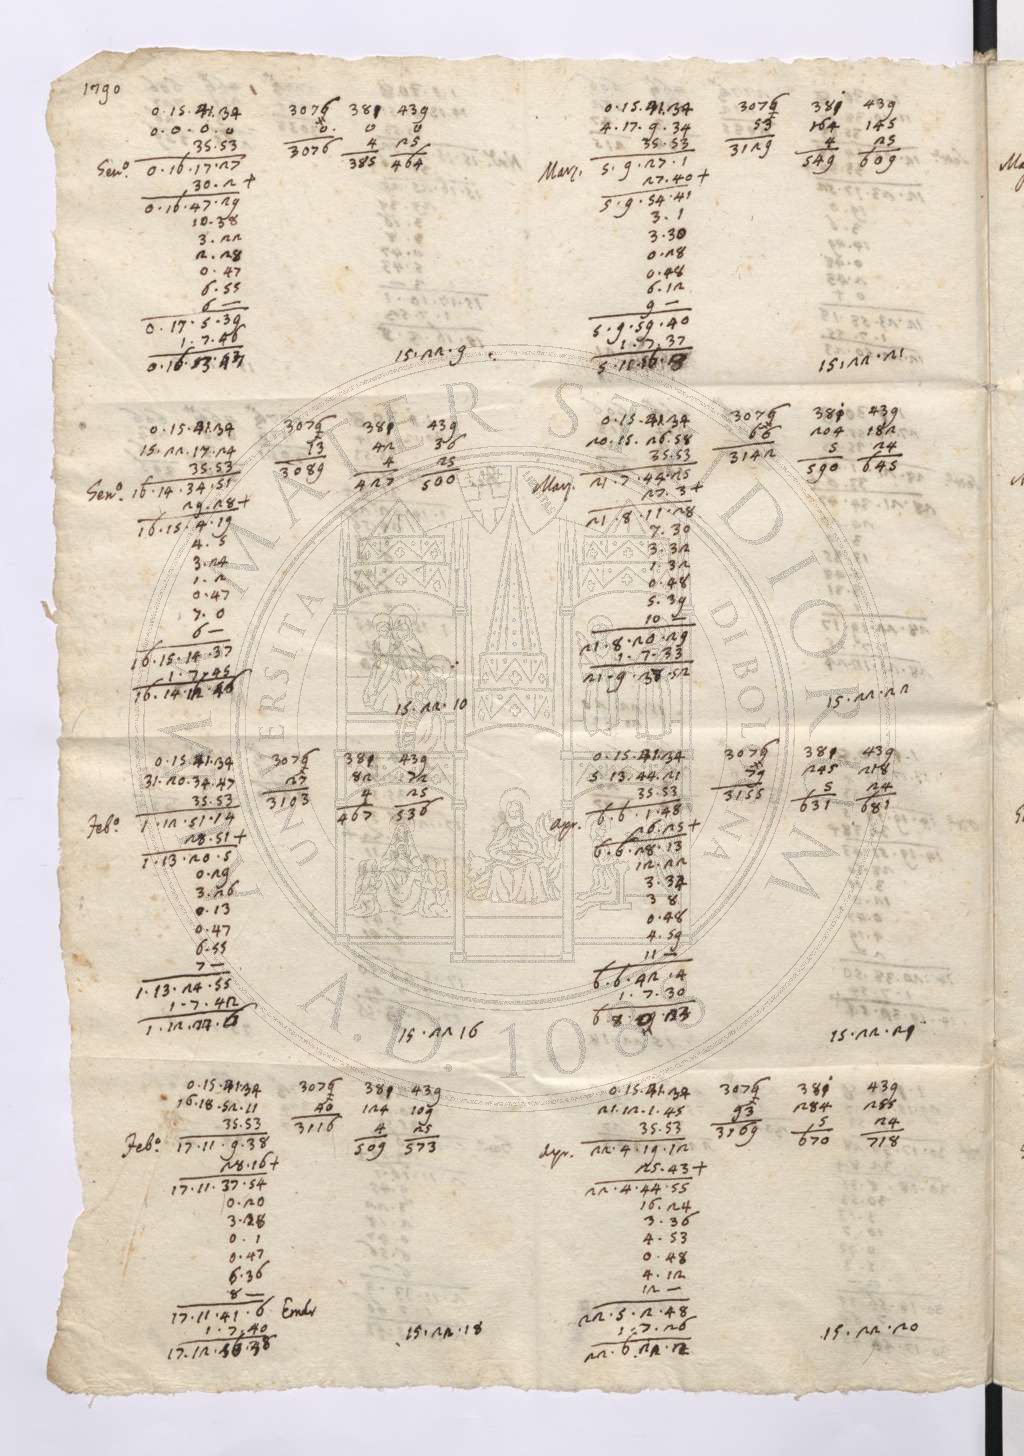 1790
0.15.41.34 3076 381 439
0.0.0.0 0. 0 0
35.53 3076 4 25
Gen.º 0.16.17.27 385 464
30.2+
0.16.47.29
10.38
3.22
2.28
0.47
6.55
6 —
0.17.5.39
1.7.46
15.22.9
0.15.41.34 3076 381 439
15.22.17.24 13 42 36
35.53 3089 4 25
Gen.º 16.14.34.51 427 500
29.28+
16.15.4.19
4.5
3.24
1.2
0.47
7.0
6 —
16.15.14.37
1.7.45
16.14.12.46
15.22.10
0.15.41.34 3076 381 439
31.20.34.47 27 82 72
35.53 3103 4 25
Feb.º 1.12.51.14 467 536
28.51+
1.13.20.5
0.29
3.26
0.13
0.47
6.55
7 —
1.13.24.55
1.7.42
15.22 16
0.15.41.34 3076 381 439
16.18.52.11 40 124 109
35.53 3116 4 25
Feb.º 17.11.9.38 509 573
28.16+
17.11.37.54
0.20
3.28
0.1
0.47
6.36
8 —
17.11.41.6
1.7.40
15.22.18
0.15.41.34 3076 381 439
4.17.9.34 53 164 145
35.53 3129 4 25
Marz. 5.9.27.1 549 609
27.40+
5.9.54.41
3.1
3.30
0.28
0.48
6.12
9 —
5.9.59.40
1.7.37
15.22.21
0.15.41.34 3076 381 439
20.15.26.58 66 204 182
35.53 3142 5 24
Marz. 21.7.44.25 590 645
27.3+
21.8.11.28
7.30
3.32
1.32
0.48
5.39
10 —
21.8.20.29
1.7.33
21.9.38.52
15.22.22
0.15.41.34 3076 381 439
5.13.44.21 79 245 218
35.53 3155 5 24
apr. 6.6.1.48 631 681
26.25+
6.6.28.13
12.22
3.34
3 8
0.48
4.59
11 —
6.6.42.4
1.7.30
15.22.29
0.15.41.34 3076 381 439
21.12.1.45 93 284 255
35.53 3169 5 24
apr. 22.4.19.12 670 718
25.43+
22.4.44.55
16.24
3.36
4.53
0.48
4.12
12 —
22.5.2.48
1.7.26
15.22.20
ALMA MATER STUDIORUM
UNIVERSITÀ DI BOLOGNA
A.D. 1088